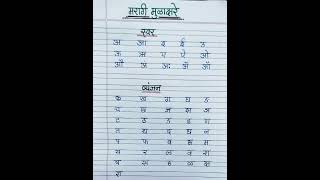 मराठी मुळाक्षरे
स्वर
अ आ इ ई उ
ऊ ऋ ए ऐ ओ
औ अं अः ॲ ऑ
व्यंजन
क ख ग घ ङ
च छ ज झ ञ
ट ठ ड ढ ण
त थ द ध न
प फ ब भ म
य र ल व श
ष स ह ळ क्ष
ज्ञ